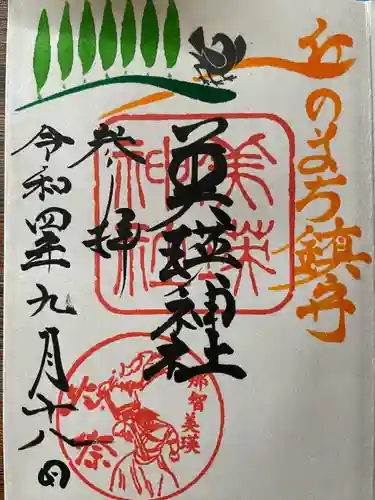 丘のまち鎮守
美瑛神社
美瑛
神社
参拝
令和四年九月十八日
那智美瑛
火祭